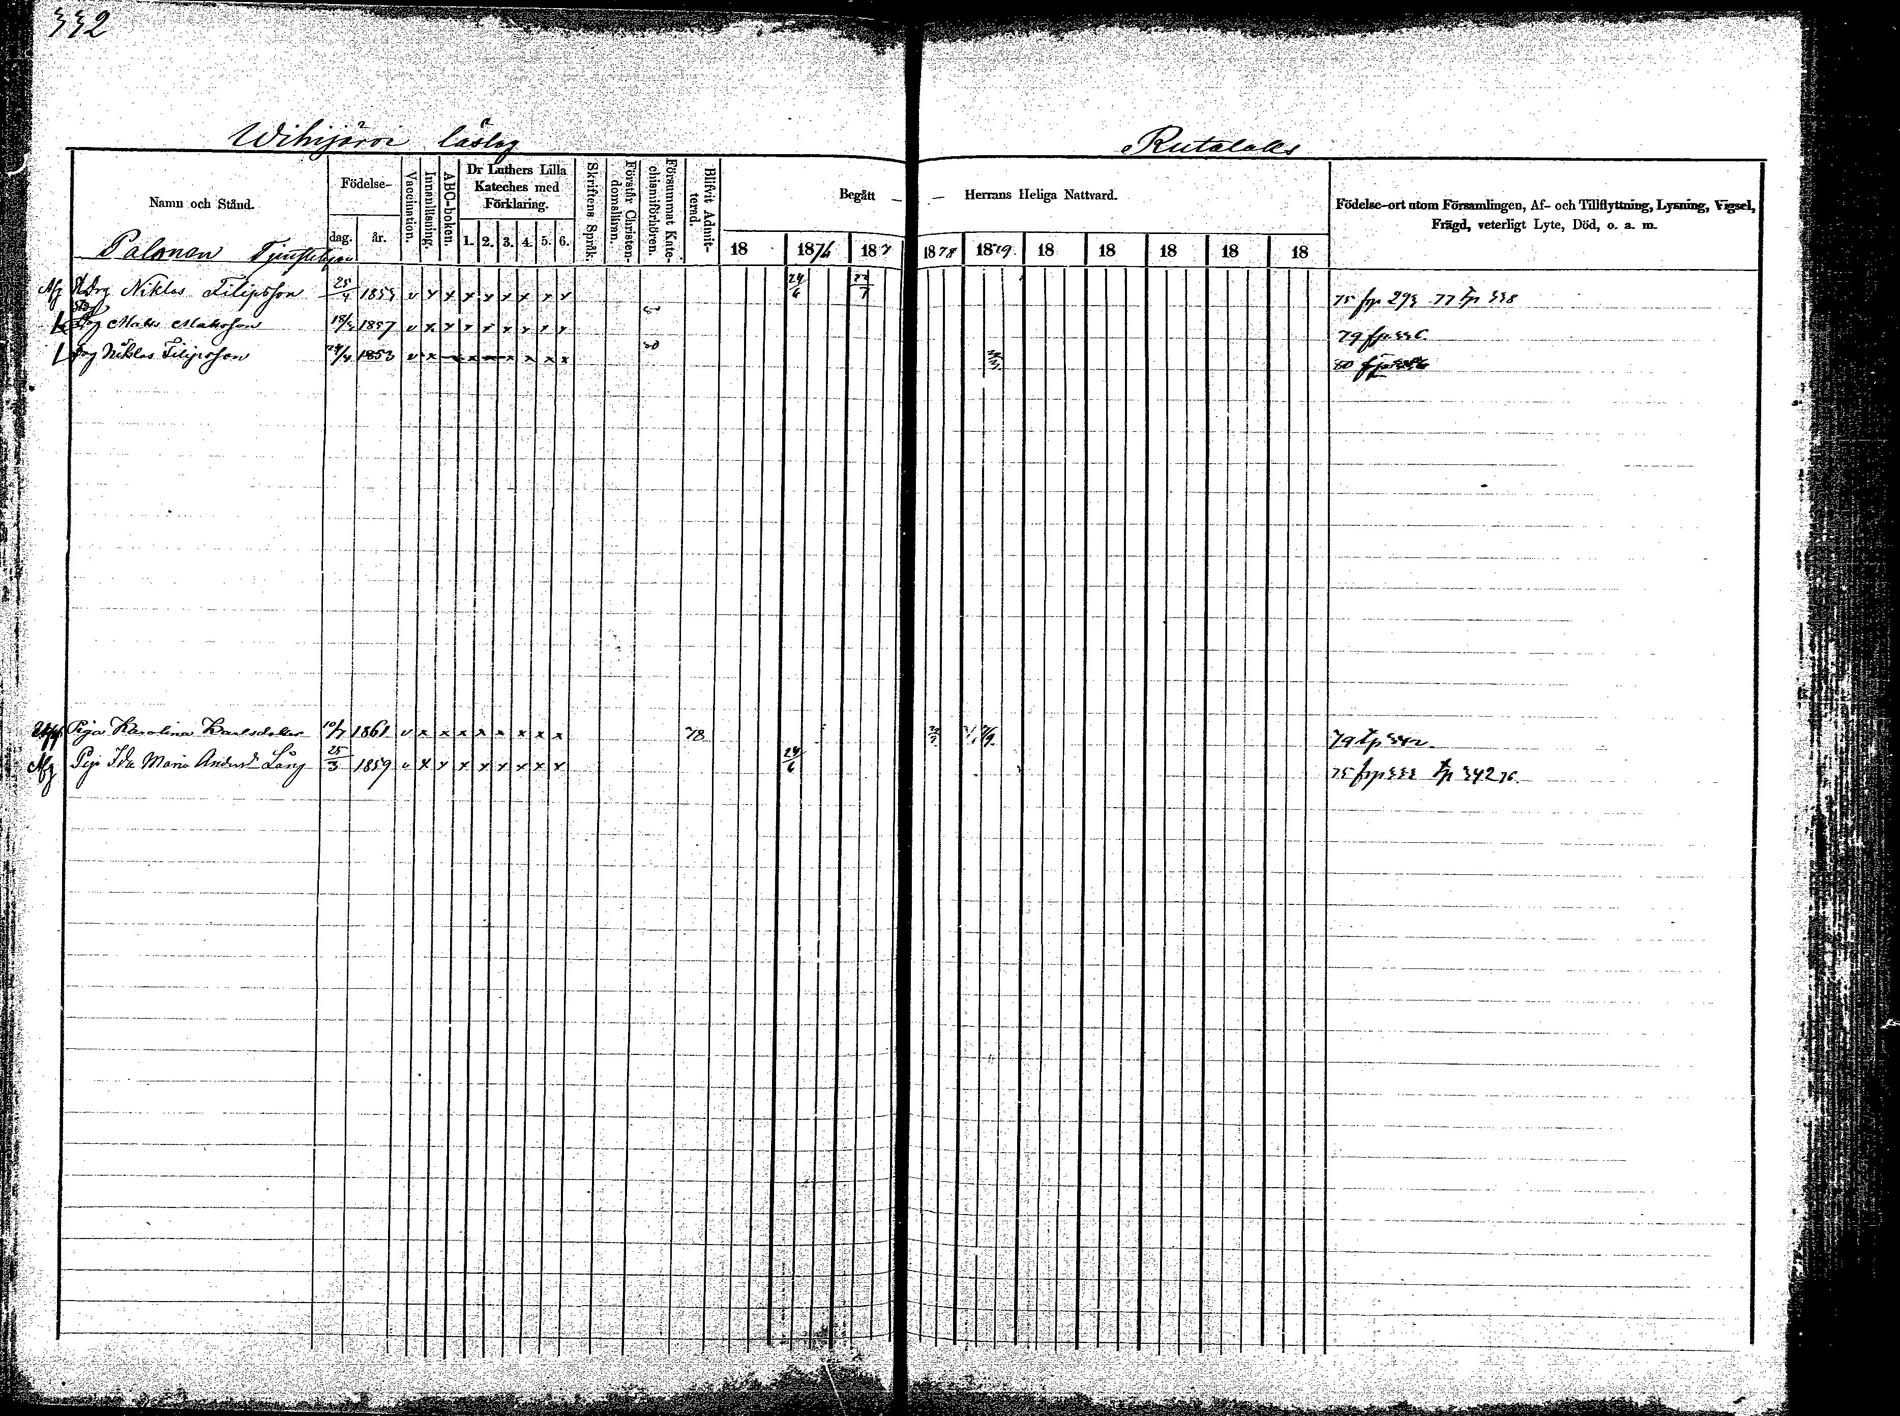 332
Wihijärvi läslag
Rutalaks
Namn och Stånd.
Födelse-
dag.
år.
Vaccination.
Innanläsning.
ABC-boken.
Dr Luthers Lilla Kateches med Förklaring.
1. 2. 3. 4. 5. 6.
Skriftens Språk.
Förstår Christendomslkunn.
Försummat Katechismiförhören.
Blifvit Admitterad.
Begått — — Herrans Heliga Nattvard.
18 1876 187 1878 1879. 18 18 18 18 18
Födelse-ort utom Församlingen, Af- och Tillflyttning, Lysning, Vigsel, Frägd, veterligt Lyte, Död, o. a. m.
Palonen
Afg Drg Niklas Filipsson 25/4 1853 v x x x x x x x x 24/6 75 frp 293 77 tp 338
Mats Matsson 1857 v x x x x x x x x
Drg Niklas Filipsson 24/4 1853 v x x x x x x 80
Piga Karolina Karlsdoter 10/7 1861 v x x x x x x x x 78 79 tp
Afg Pig Ida Maria Andersd Lång 25/3 1859 v x x x x x x x x 24/6 75 frp 333 tp 342 76.